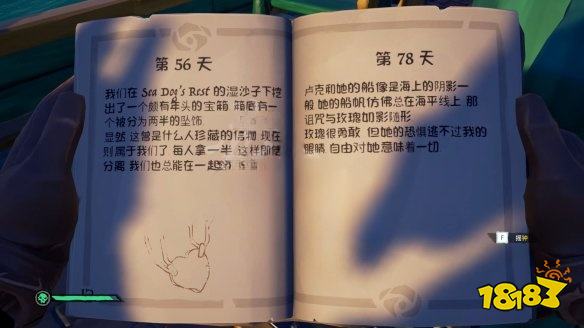 第 56 天
我们在 Sea Dot's Rest 的湿沙子下挖
出了一个颇有年头的宝箱 箱底有一
个被分为两半的坠饰
显然 这曾是什么人珍藏的信物 现在
则属于我们了 每人拿一半 这样即使
分离 我们也总能在一起
第 78 天
卢克和她的船像是海上的阴影一
般 她的船帆仿佛总在海平线上 那
诅咒与玫瑰如影随形
玫瑰很勇敢 但她的恐惧逃不过我的
眼睛 自由对她意味着一切
F
18183